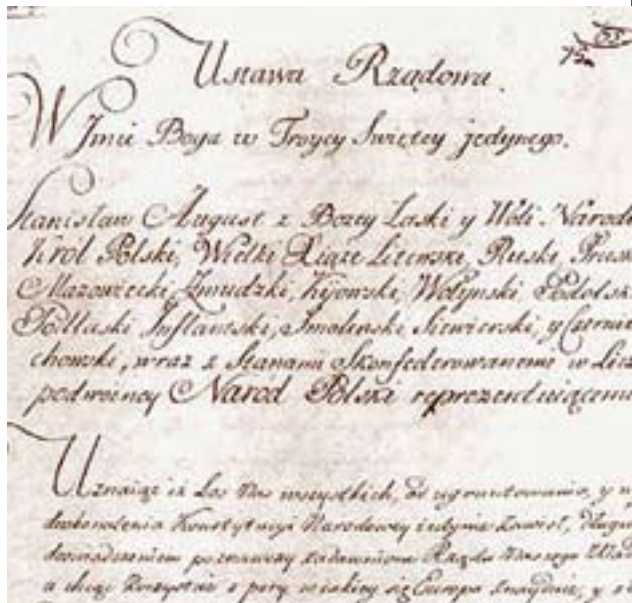 75.
Ustawa Rządowa.
W Jmie Boga w Troycy Swiętey jedynego.
Stanisław August z Bozey Łaski y Woli Narodu
Król Polski, Wielki Xiąże Litewski, Ruski, Prusk
Mazowiecki, Zmudzki, Kijowski, Wołynski, Podolsk
Podlaski, Jnflantski, Smolenski, Siewierski, y Czernie
chowski, wraz z Stanami Skonfederowanemi w Licz
podwoiney Narod Polski reprezentuiącemi
Uznaiąc iż Los Nas wszystkich, od ugruntowania, y w
doskonalenia Konstytucyi Narodowey iedynie zawisł, długim
doswiadczeniem poznawszy zadawnione Rządu Naszego Wad
a chcąc korzystać z pory w iakiey się Europa znayduie, y z